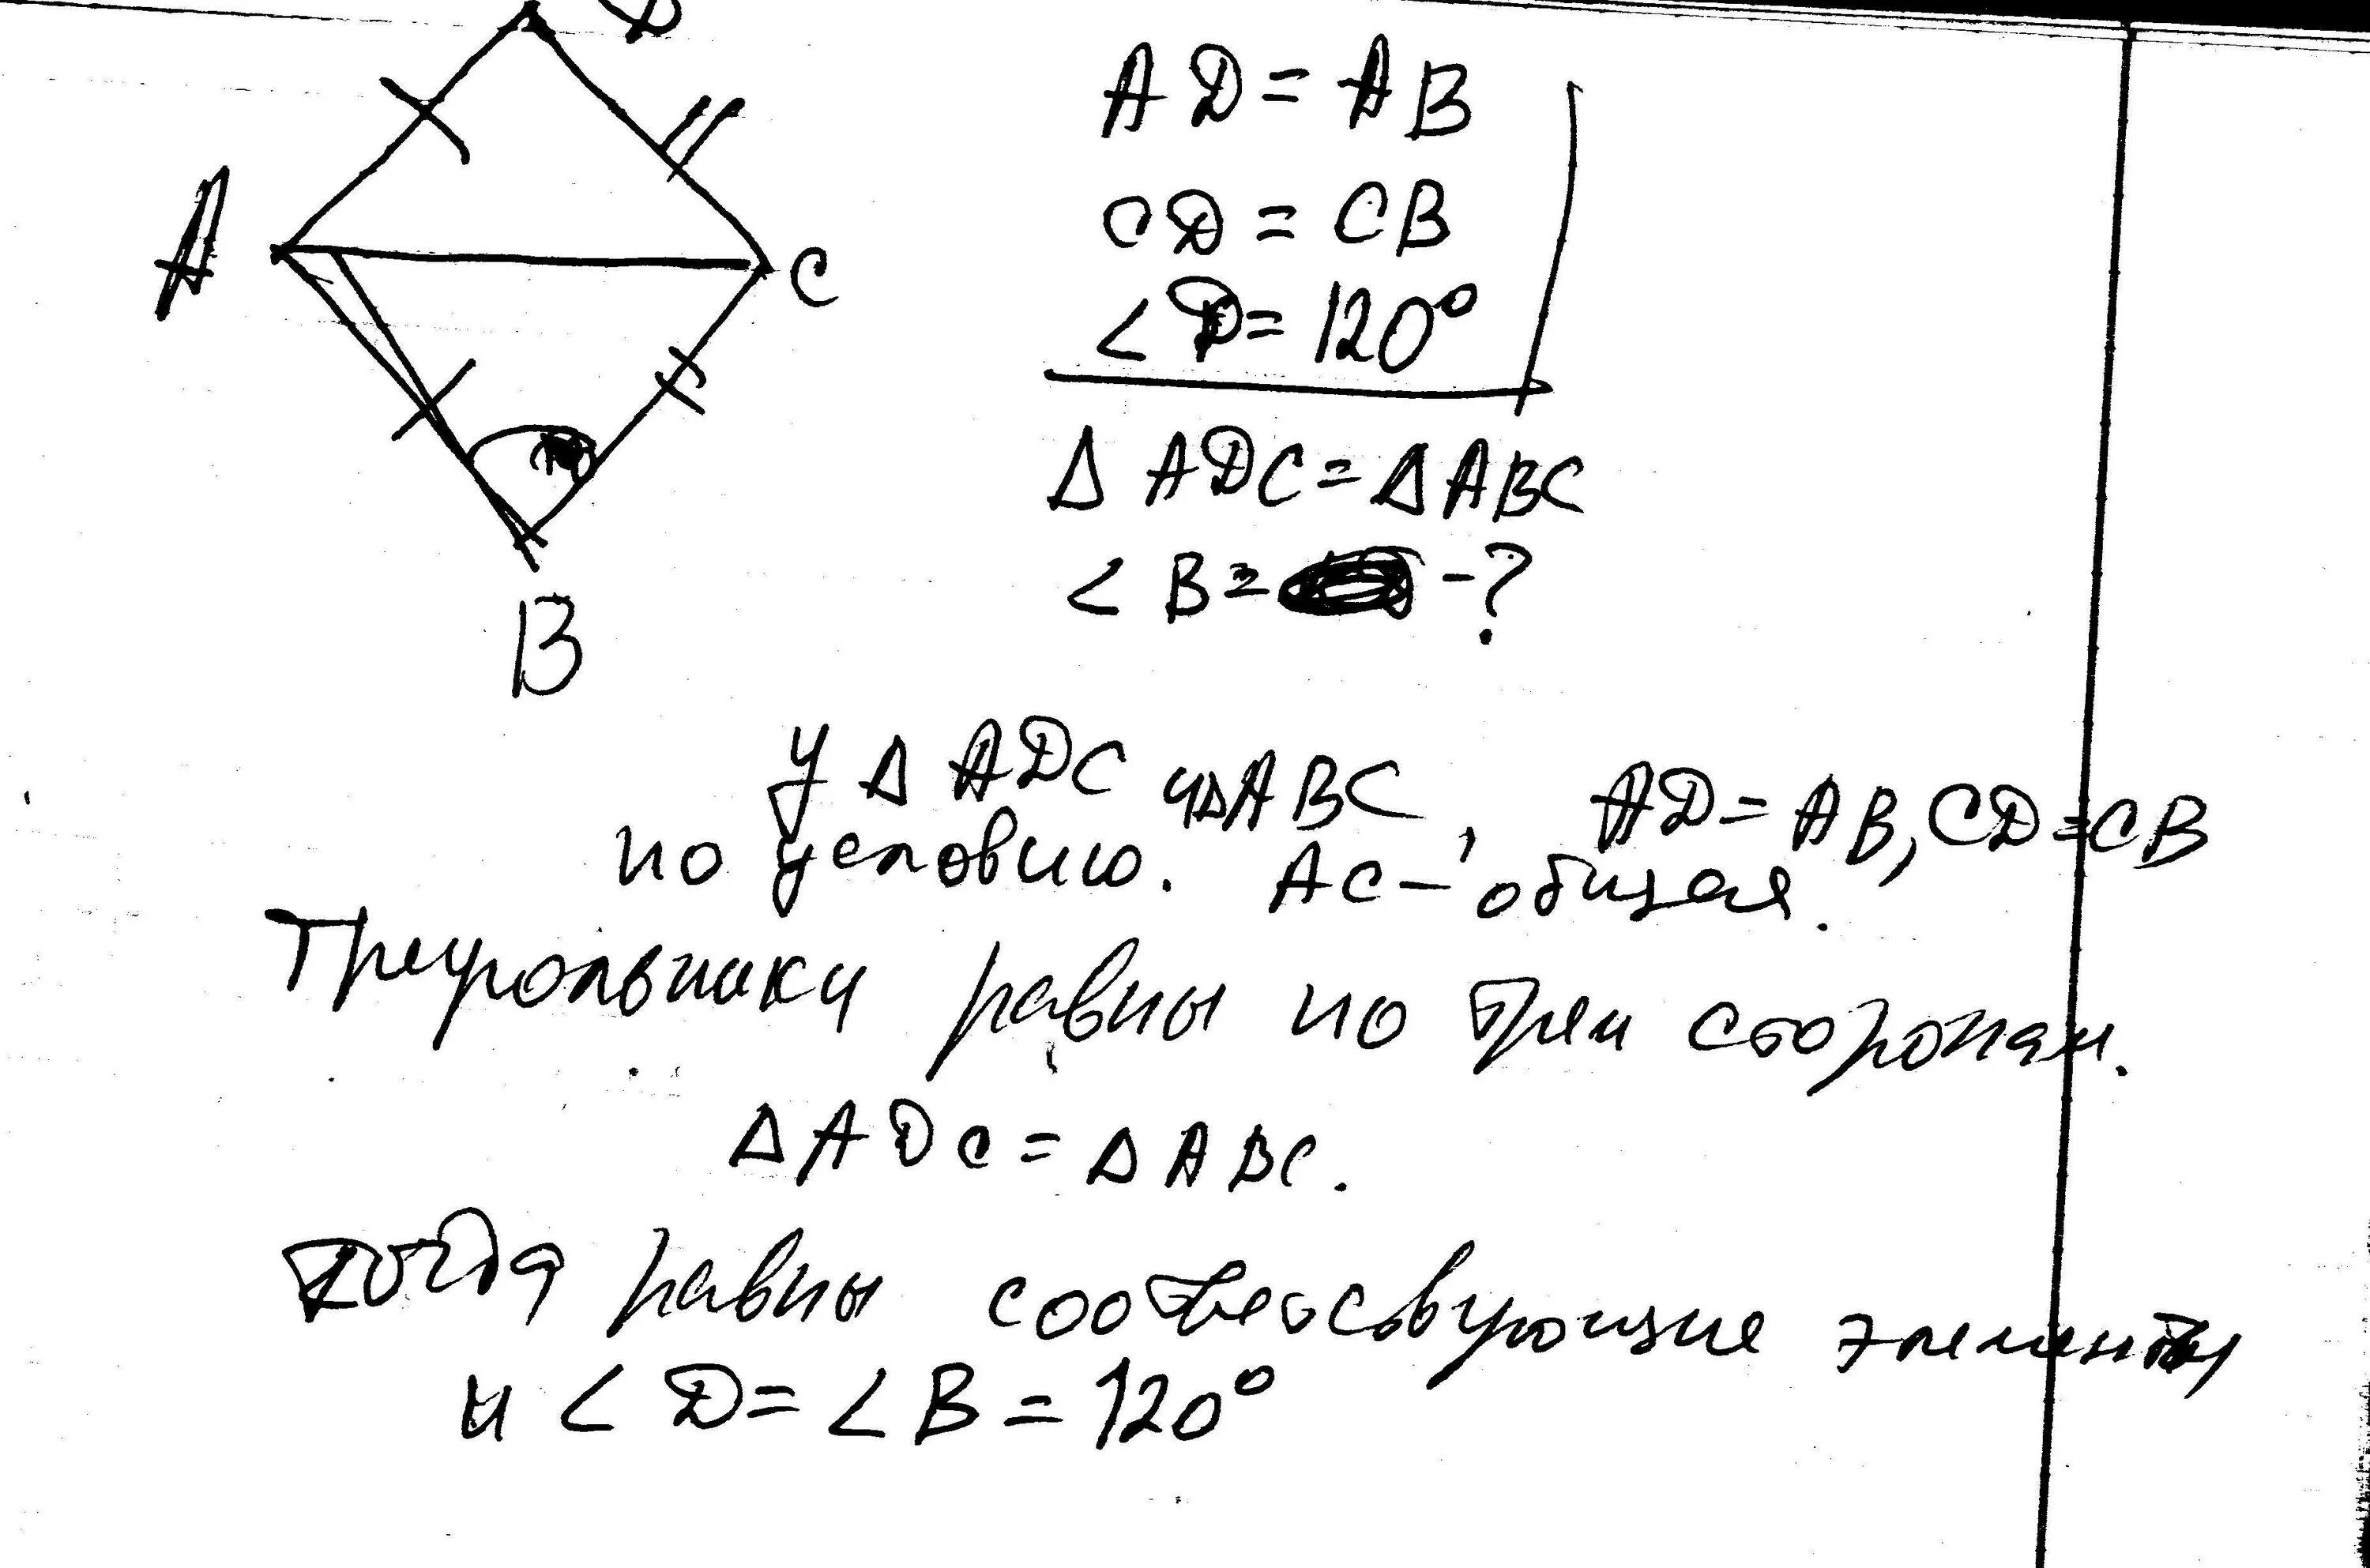 D
A
C
B
AD = AB
CD = CB
∠D = 120°
Δ ADC = Δ ABC
∠B = - ?
У Δ ADC и Δ ABC, AD = AB, CD = CB
по условию. AC – общая.
Треугольники равны по трем сторонам.
Δ ADC = Δ ABC.
Тогда равны соответсвующие элементы
и ∠D = ∠B = 120°